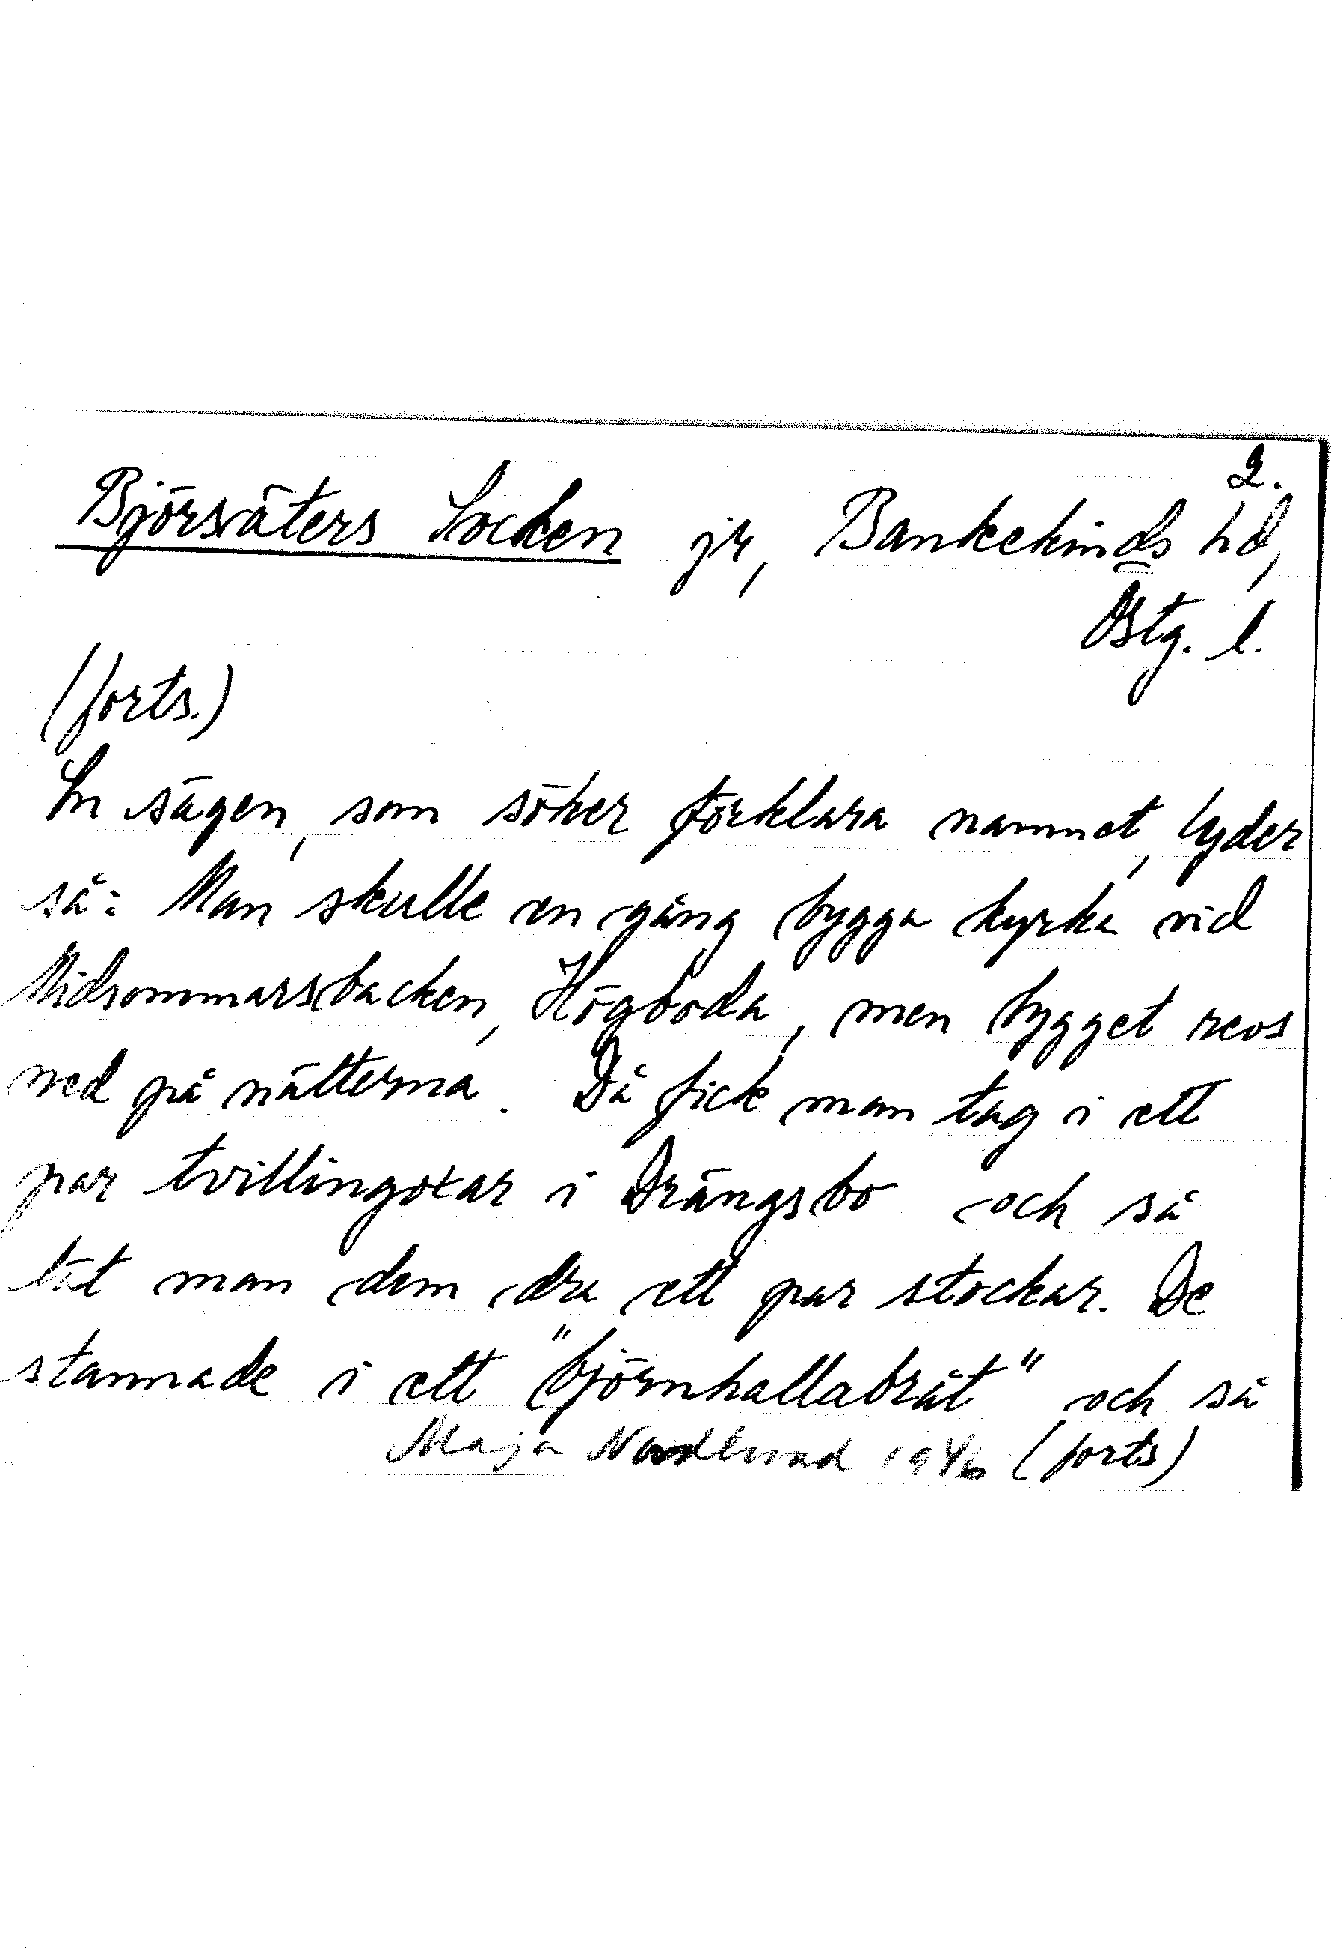 2.
Björsäters Socken jr, Bankekinds hd,
Östg. l.
(forts.)
En sägen, som söker förklara namnet, lyder
så: Man skulle en gång bygga kyrka vid
Midsommarsbacken, Högboda, men bygget revs
ned på nätterna. Då fick man tag i ett
par tvillingoxar i Drängsbo och så
lät man dem dra ett par stockar. De
stannade i ett "björnhallabråt" och så
Maja Nordlund 1946 (forts)